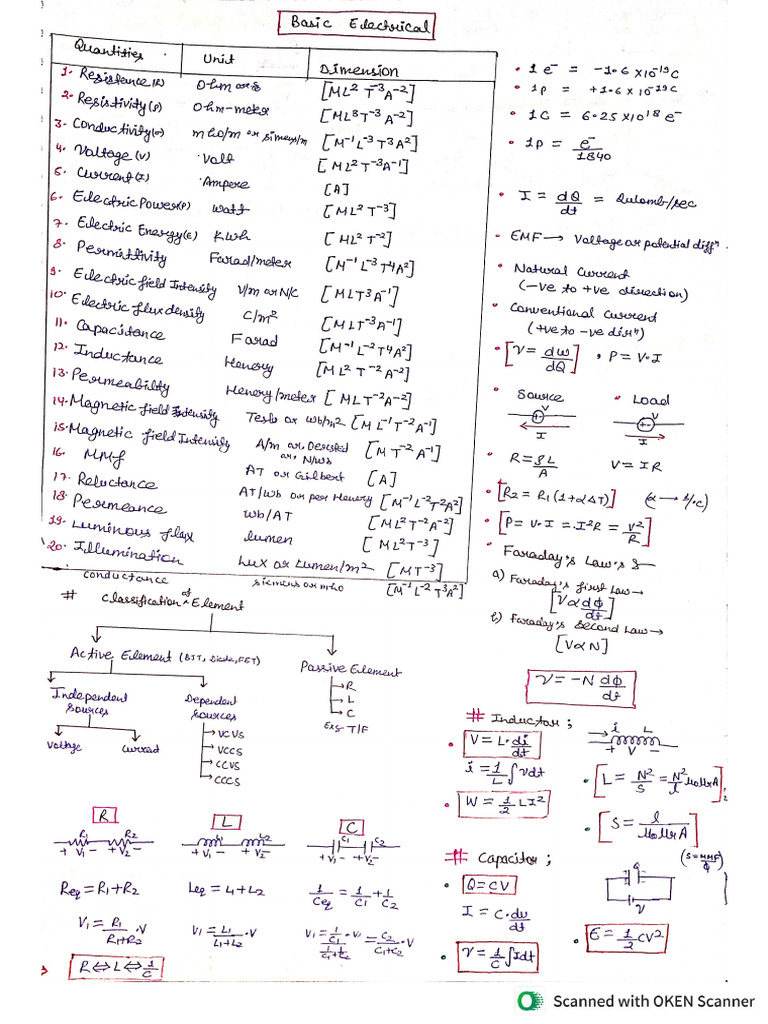 Basic Electrical
Quantities Unit Dimension
1. Resistance (R) Ohm or Ω [ML² T⁻³A⁻²]
2. Resistivity (ρ) Ohm-meter [ML³ T⁻³A⁻²]
3. Conductivity (σ) mho/m or simens/m [M⁻¹L⁻³ T³A²]
4. Voltage (V) Volt [ML² T⁻³A⁻¹]
5. Current (I) Ampere [A]
6. Electric Power (P) watt [ML² T⁻³]
7. Electric Energy (E) Kwh [ML² T⁻²]
8. Permittivity Farad/meter [M⁻¹L⁻³ T⁴A²]
9. Electric field Intensity V/m or N/C [MLT⁻³A⁻¹]
10. Electric flux density C/m² [MLT⁻³A⁻¹]
11. Capacitance Farad [M⁻¹L⁻²T⁴A²]
12. Inductance Henery [ML² T⁻²A⁻²]
13. Permeability Henery/meter [MLT⁻²A⁻²]
14. Magnetic field Intensity Tesla or Wb/m² [ML⁻¹T⁻²A⁻¹]
15. Magnetic field Intensity A/m or, Oersted or, N/wb [MT⁻²A⁻¹]
16. MMf AT or Gilbert [A]
17. Reluctance AT/Wb or per Henery [M⁻¹L⁻²T²A²]
18. Permeance Wb/AT [ML²T⁻²A⁻²]
19. Luminous flux lumen [ML²T⁻³]
20. Illumination Lux or Lumen/m² [MT⁻³]
conductance siemens or mho [M⁻¹L⁻²T³A²]
• 1 e⁻ = -1.6 x10⁻¹⁹C
• 1p = +1.6 x 10⁻¹⁹C
• 1C = 6.25 x10¹⁸ e⁻
• 1p = e⁻/1840
• I = dQ/dt = Qulomb/sec
• EMF → Voltage or potential diffⁿ.
• Natural Current
(-ve to +ve direction)
• Conventional Current
(+ve to -ve dirⁿ)
• [V = dw/dQ], P = V·I
• Source • Load
V V
I I
• R = ρL/A V = IR
• [R₂ = R₁(1+αΔT)] (α → /°C)
• [P = V·I = I²R = V²/R]
• Faraday's Law's :-
a) Faraday's first law →
[V α dφ/dt]
b) Faraday's Second Law →
[V α N]
V = -N dφ/dt
# Classification of Element
Active Element (BJT, Diode, FET) Passive Element
Independent Sources Dependent Sources
→ R
→ L
→ C
Exg- T/F
Voltage Current
→ VCVS
→ VCCS
→ CCVS
→ CCCS
# Inductor ;
• V = L·di/dt
i = 1/L ∫vdt
• W = 1/2 LI²
i L
+ V -
• [L = N²/S = N²/l μoμrA]
• [S = l/μoμrA]
(S = MMF/φ)
R L C
R₁ R₂ L₁ L₂ C₁ C₂
+ V₁ - + V₂ - + V₁ - + V₂ - + V₁ - + V₂ -
Req = R₁+R₂ Leq = L₁+L₂ 1/Ceq = 1/C₁ + 1/C₂
V₁ = R₁/R₁+R₂ ·V V₁ = L₁/L₁+L₂ ·V V₁ = 1/C₁ / 1/C₁+1/C₂ ·V = C₂/C₁+C₂ ·V
R ⇔ L ⇔ 1/C
# Capacitor ;
• Q = CV
I = C·dv/dt
• V = 1/C ∫Idt
V
• E = 1/2 CV²
Scanned with OKEN Scanner